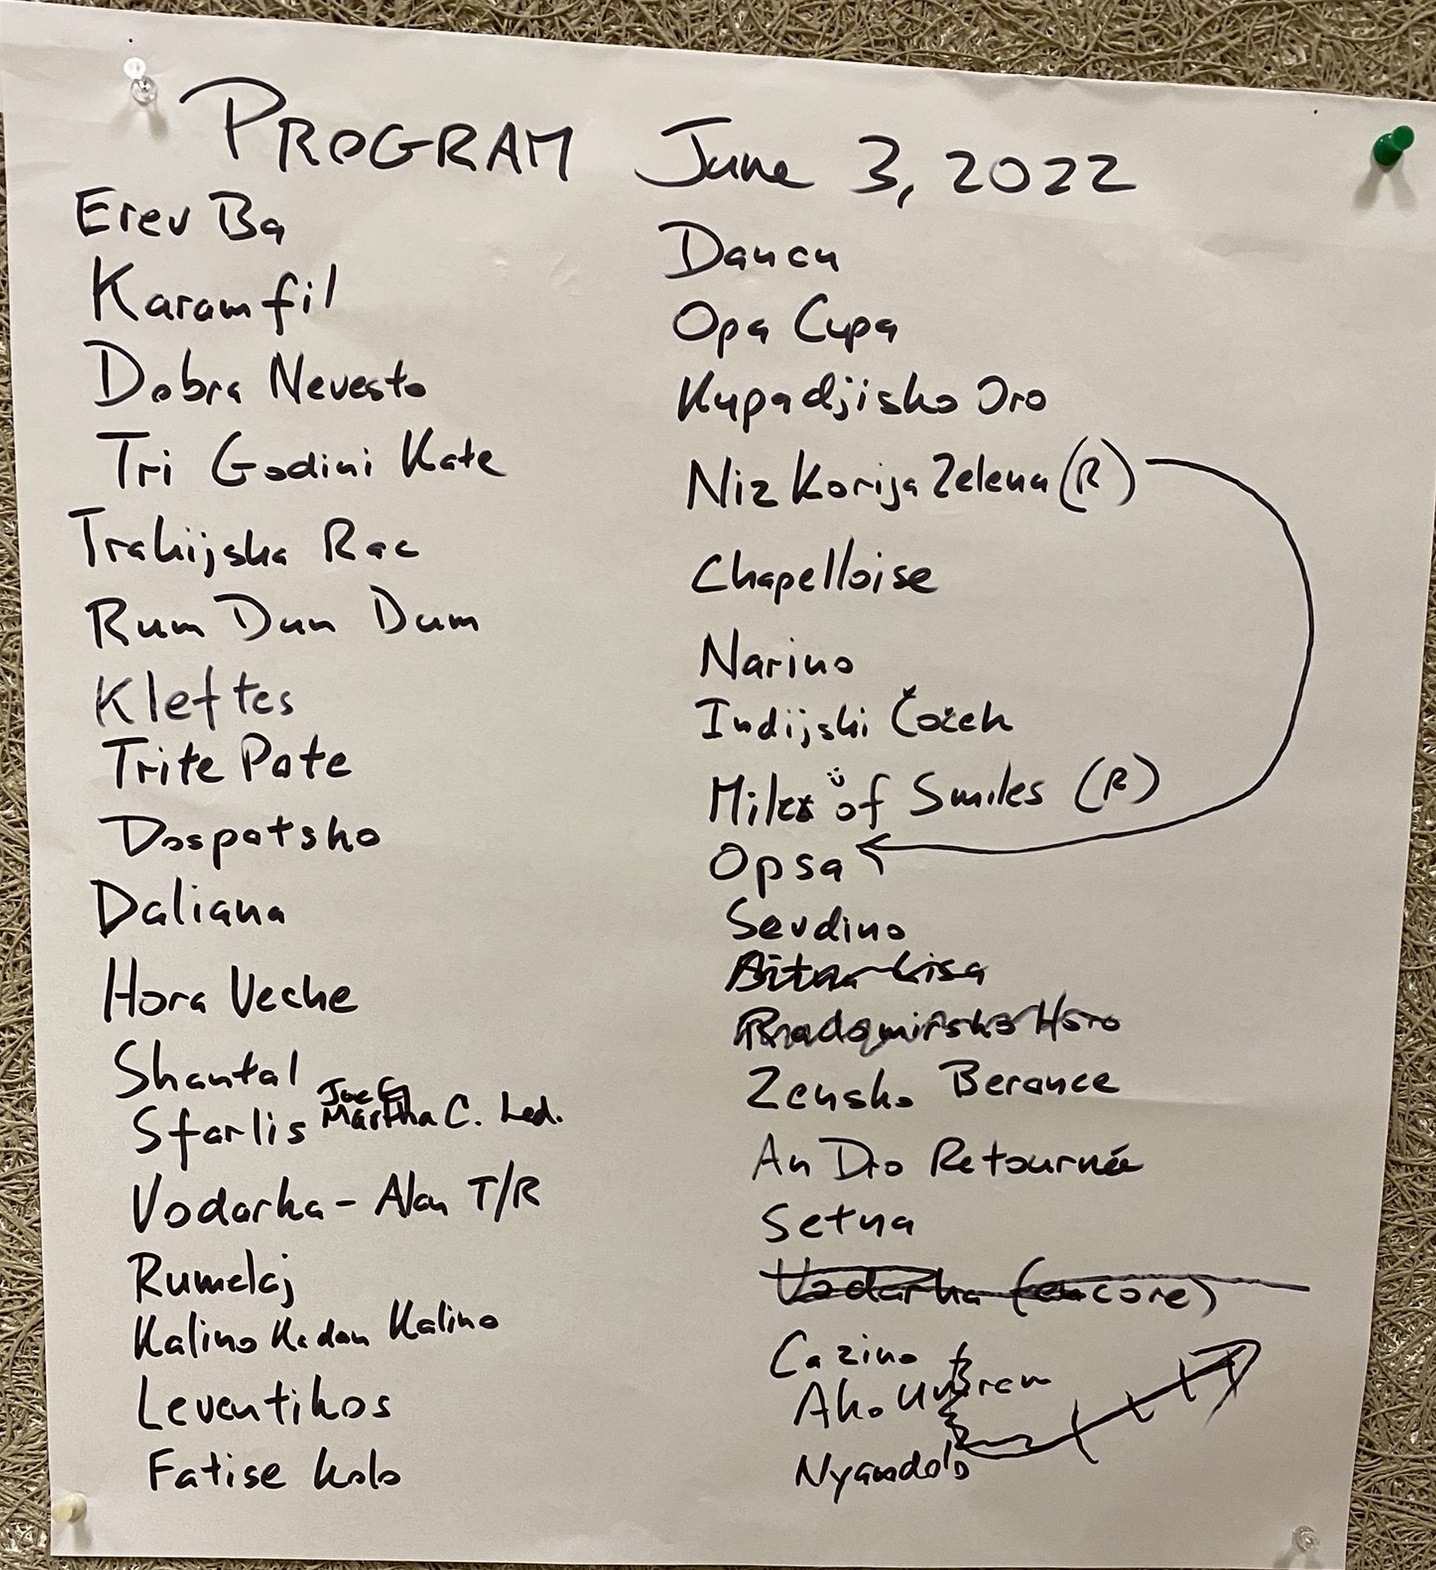 PROGRAM June 3, 2022
Erev Ba
Karamfil
Dobra Nevesto
Tri Godini Kate
Trakijska Rac
Rum Dun Dum
Kleftes
Trite Pate
Dospatsko
Daliana
Hora Veche
Shantal
Sfarlis Joe G
Martha C. Led.
Vodarka - Alan T/R
Rumelaj
Kalino Kadan Kalino
Leventikos
Fatise Kolo
Dancu
Opa Cupa
Kupadjisko Oro
Niz Korija Zelena (R)
Chapelloise
Narino
Indijski Čoček
Miles of Smiles (R)
Opsa
Sevdino
Radomirsko Horo
Zensko Berance
An Dro Retournée
Setna
Vodarka (encore)
Cazino
Ako Umrem
Nyandolo